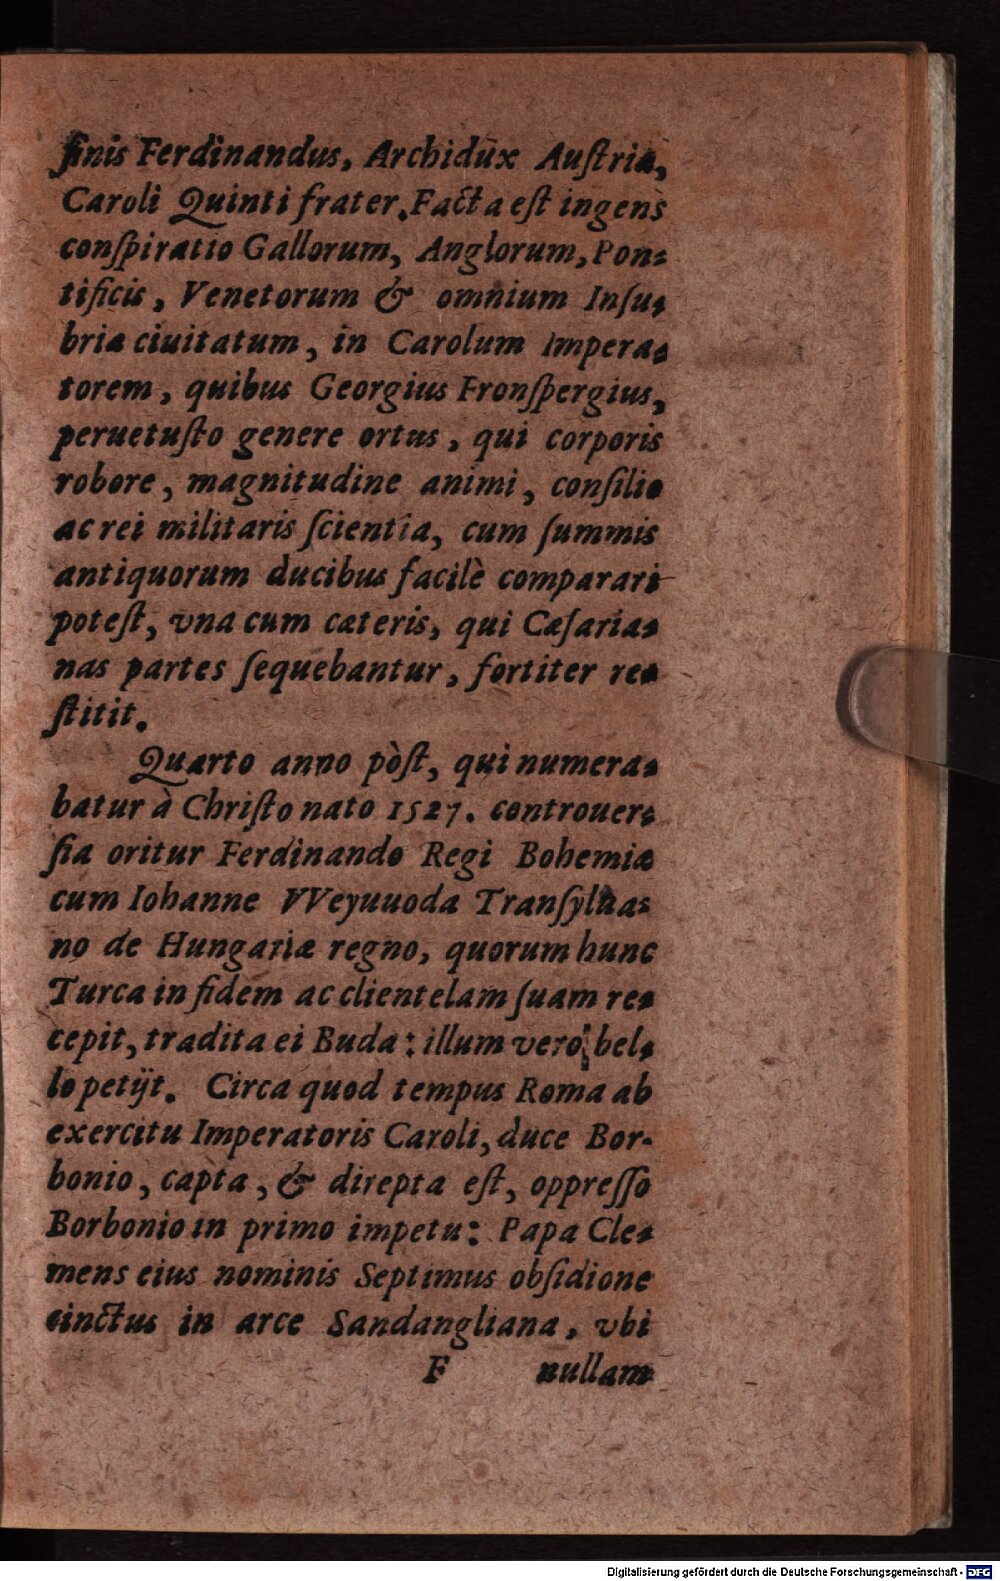 ſinis Ferdinandus, Archidux Auſtriæ,
Caroli Quinti frater. Facta eſt ingens
conſpiratio Gallorum, Anglorum, Pon-
tificis, Venetorum & omnium Inſu-
briæ ciuitatum, in Carolum Impera-
torem, quibus Georgius Fronſpergius,
peruetuſto genere ortus, qui corporis
robore, magnitudine animi, conſilio
ac rei militaris ſcientia, cum ſummis
antiquorum ducibus facilè comparari
poteſt, vna cum cæteris, qui Cæſaria-
nas partes ſequebantur, fortiter re-
ſtitit.
Quarto anno pòſt, qui numera-
batur à Chriſto nato 1527. controuer-
ſia oritur Ferdinando Regi Bohemiæ
cum Iohanne VVeyuuoda Tranſylua-
no de Hungariæ regno, quorum hunc
Turca in fidem ac clientelam ſuam re-
cepit, tradita ei Buda: illum vero bel-
lo petijt. Circa quod tempus Roma ab
exercitu Imperatoris Caroli, duce Bor-
bonio, capta, & direpta eſt, oppreſſo
Borbonio in primo impetu: Papa Cle-
mens eius nominis Septimus obſidione
cinctus in arce Sandangliana, vbi
F nullam
Digitalisierung gefördert durch die Deutsche Forschungsgemeinschaft - DFG